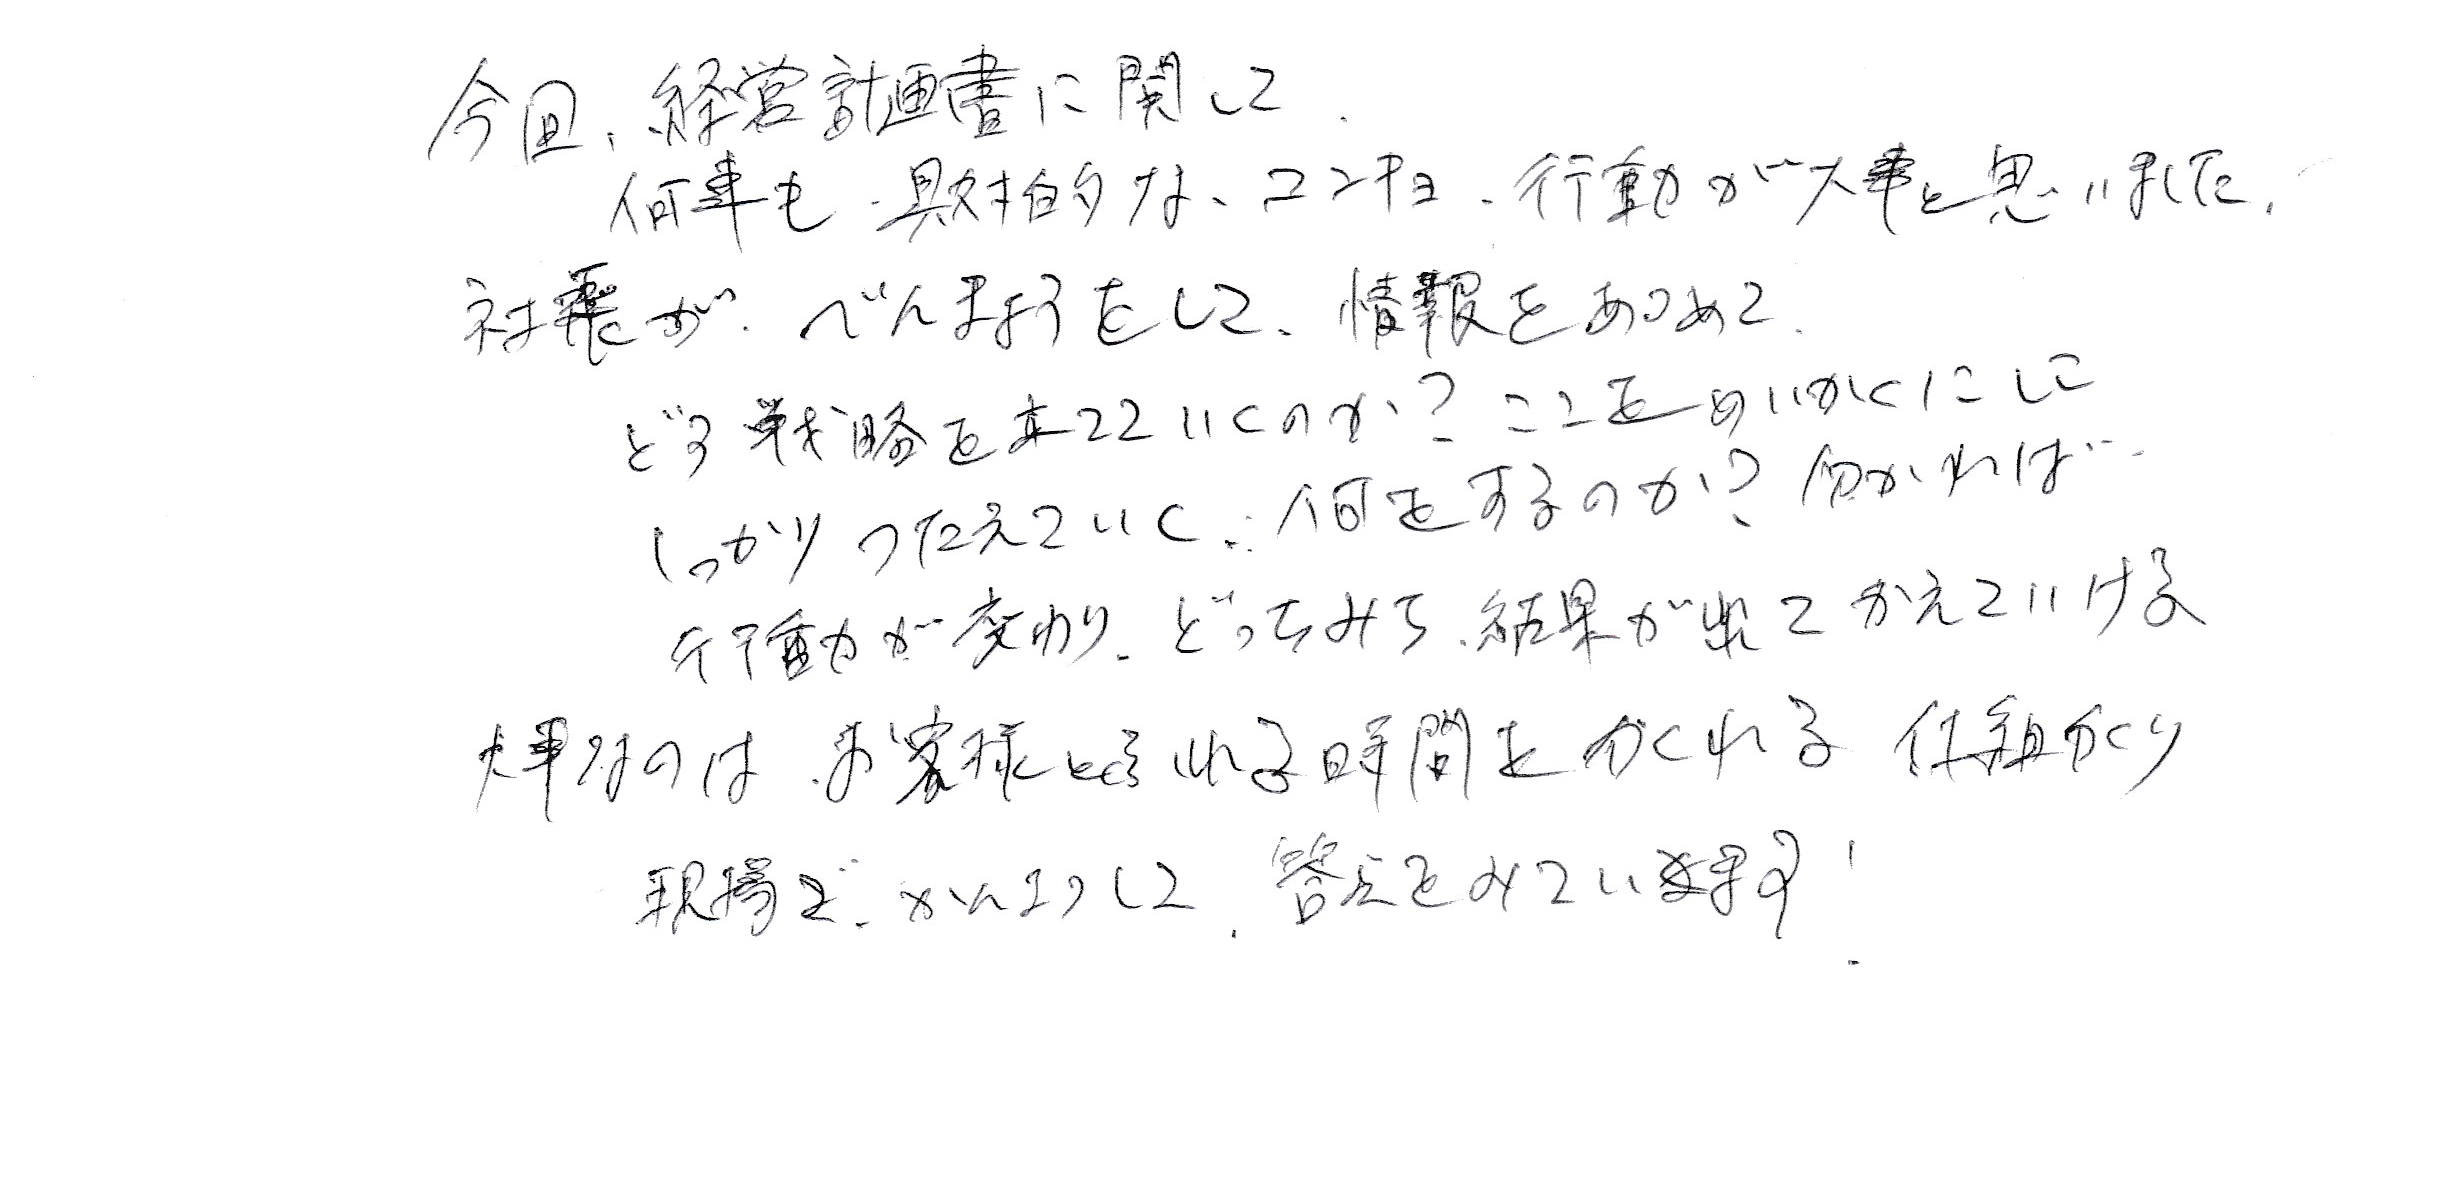 今回、経営計画書に関して、
何事も、具体的な、コンキョ、行動が大事と思いました。
社長が、べんきょうをして、情報をあつめて、
どう戦略を立てていくのか？ここをめいかくにして
しっかりつたえていく。何をするのか？分かれば…
行動が変わり、どっちみち、結果が出て かえていける
大事なのは、お客様と 時間を つくれる 仕組づくり
現場で、かんさつして、答えをみていきます！